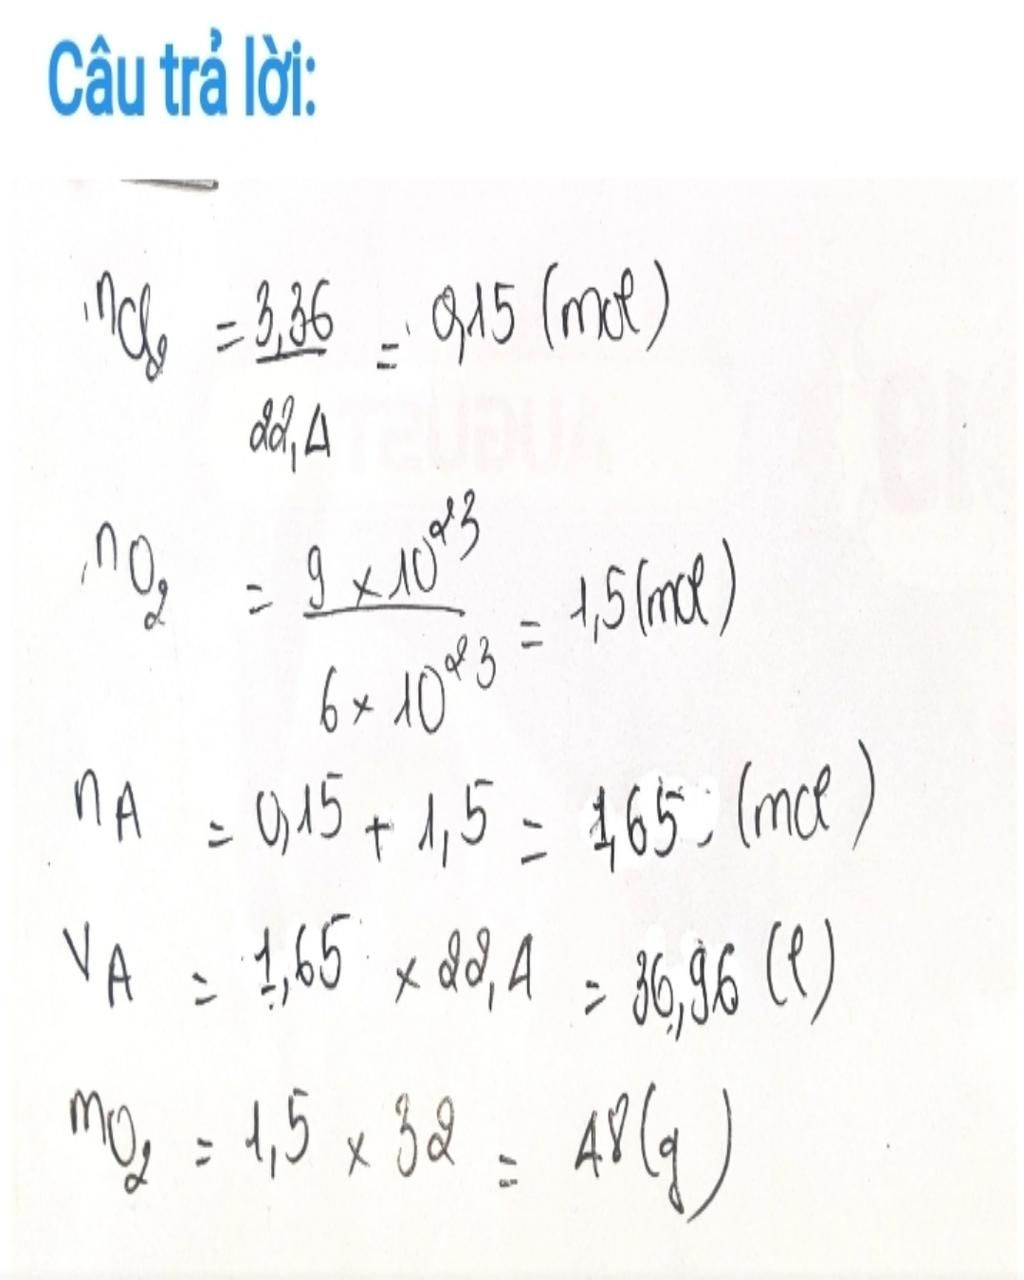 Câu trả lời:
nCl₂ = 3,36 / 22,4 = 0,15 (mol)
nO₂ = 9 × 10²³ / 6 × 10²³ = 1,5 (mol)
nA = 0,15 + 1,5 = 1,65 (mol)
VA = 1,65 × 22,4 = 36,96 (l)
mO₂ = 1,5 × 32 = 48 (g)
AUGUST